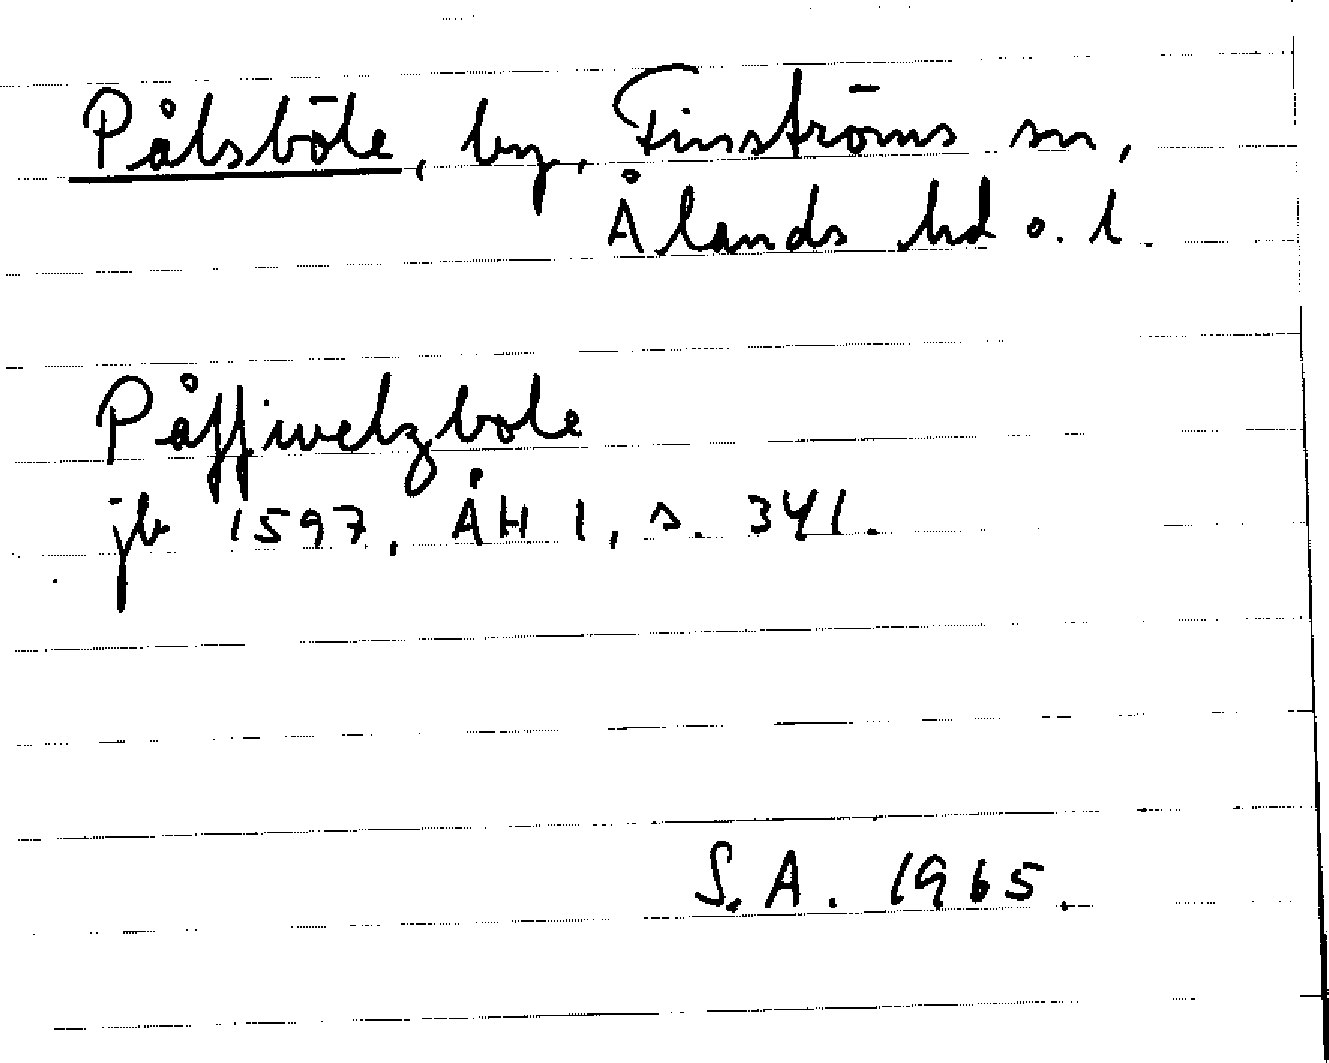 Pålsböle, by, Finströms sn,
Ålands hd o. l.
Påffwelzbole
jb 1597, ÅH 1, s. 341.
S.A. 1965.